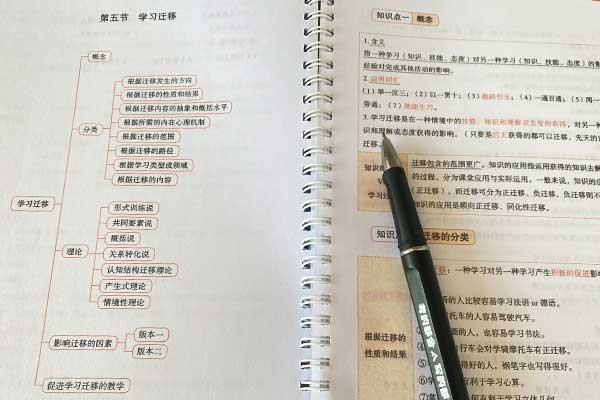 第五节 学习迁移
概念
根据迁移发生的方向
根据迁移的性质和结果
根据迁移内容的抽象和概括水平
根据所需的内在心理机制
分类
根据迁移的范围
根据迁移的路径
根据学习类型或领域
根据迁移的内容
学习迁移
形式训练说
共同要素说
概括说
理论
关系转化说
认知结构迁移理论
产生式理论
情境性理论
影响迁移的因素
版本一
版本二
促进学习迁移的教学
知识点一 概念
1. 含义
指一种学习（知识、技能、态度）对另一种学习（知识、技能、态度）的影
经验对完成其他活动的影响。
2. 说明词汇
(1) 举一反三；(2) 以一贯十；(3)
(4) 一通百通；(5) 闻一
旁通；(7) 熟能生巧。
3. 学习迁移是在一种情境中的技能、知识和理解或态度的获得，对另一种
识和理解或态度获得的影响。（只要是后天获得的都可以迁移，先天的
迁移。
知识的
学习迁
迁移包含的范围更广。知识的应用指运用获得的知识去解
的过程，分为课堂应用与实际运用。一般来说，知识的应
（正迁移），而迁移可分为正迁移、负迁移、负迁移则不
知识的应用是顺向正迁移、同化性迁移。
知识点
迁移的分类
根据迁移的
性质和结果
：一种学习对另一种学习产生积极的促进影
的人比较容易学习法语 or 德语。
托车的人容易驾驶汽车。
的人，也容易学习书法。
自行车会对学骑摩托车有正迁移。
得好的人，钢笔字也写得很好。
有利于学习心算。
有利于学习立体几何。